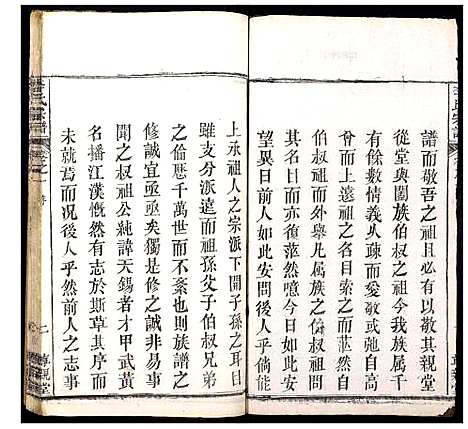 譜而敬吾之祖且必有以敬其親堂
從堂與闔族伯叔之祖今我族屬千
有餘數情義火疎而愛敬或弛自高
曾而上遠祖之名目索之而茫然自
伯叔祖而外舉凡属族之倫叔祖若
者名目而亦茫然如此安問前人是
望異日前人如此安問後人乎倘能
上承祖人之宗派下開子孫之耳目
雖支分派遠而祖孫父子伯叔兄弟
之倫歷千萬世而不紊也則族譜之
修誠宜亟亟矣獨是修之誠非易事
聞之叔祖公純諱天錫者才甲武黃
名播江漢慨然有志於斯草其序而
未就焉而况後人乎然前人之志事
氏宗譜
卷之一
尊親堂
氏宗譜